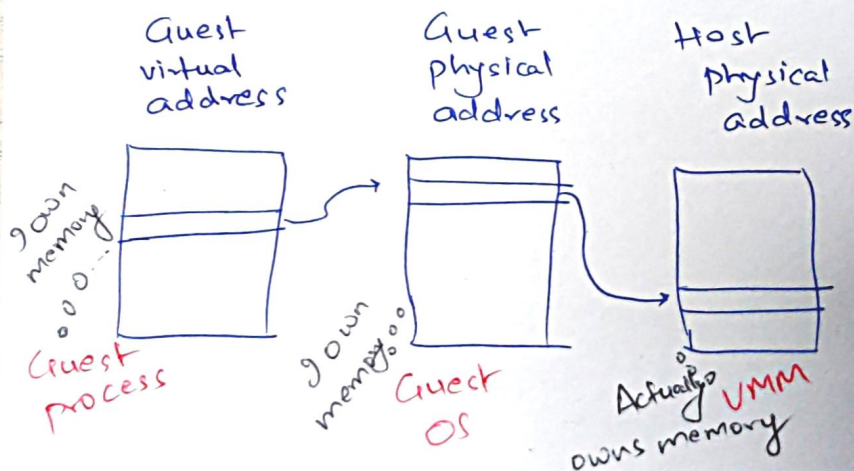 Guest
virtual
address
Guest
physical
address
Host
physical
address
I own
memory
Guest
process
I own
memory
Guest
OS
Actually
owns memory
VMM